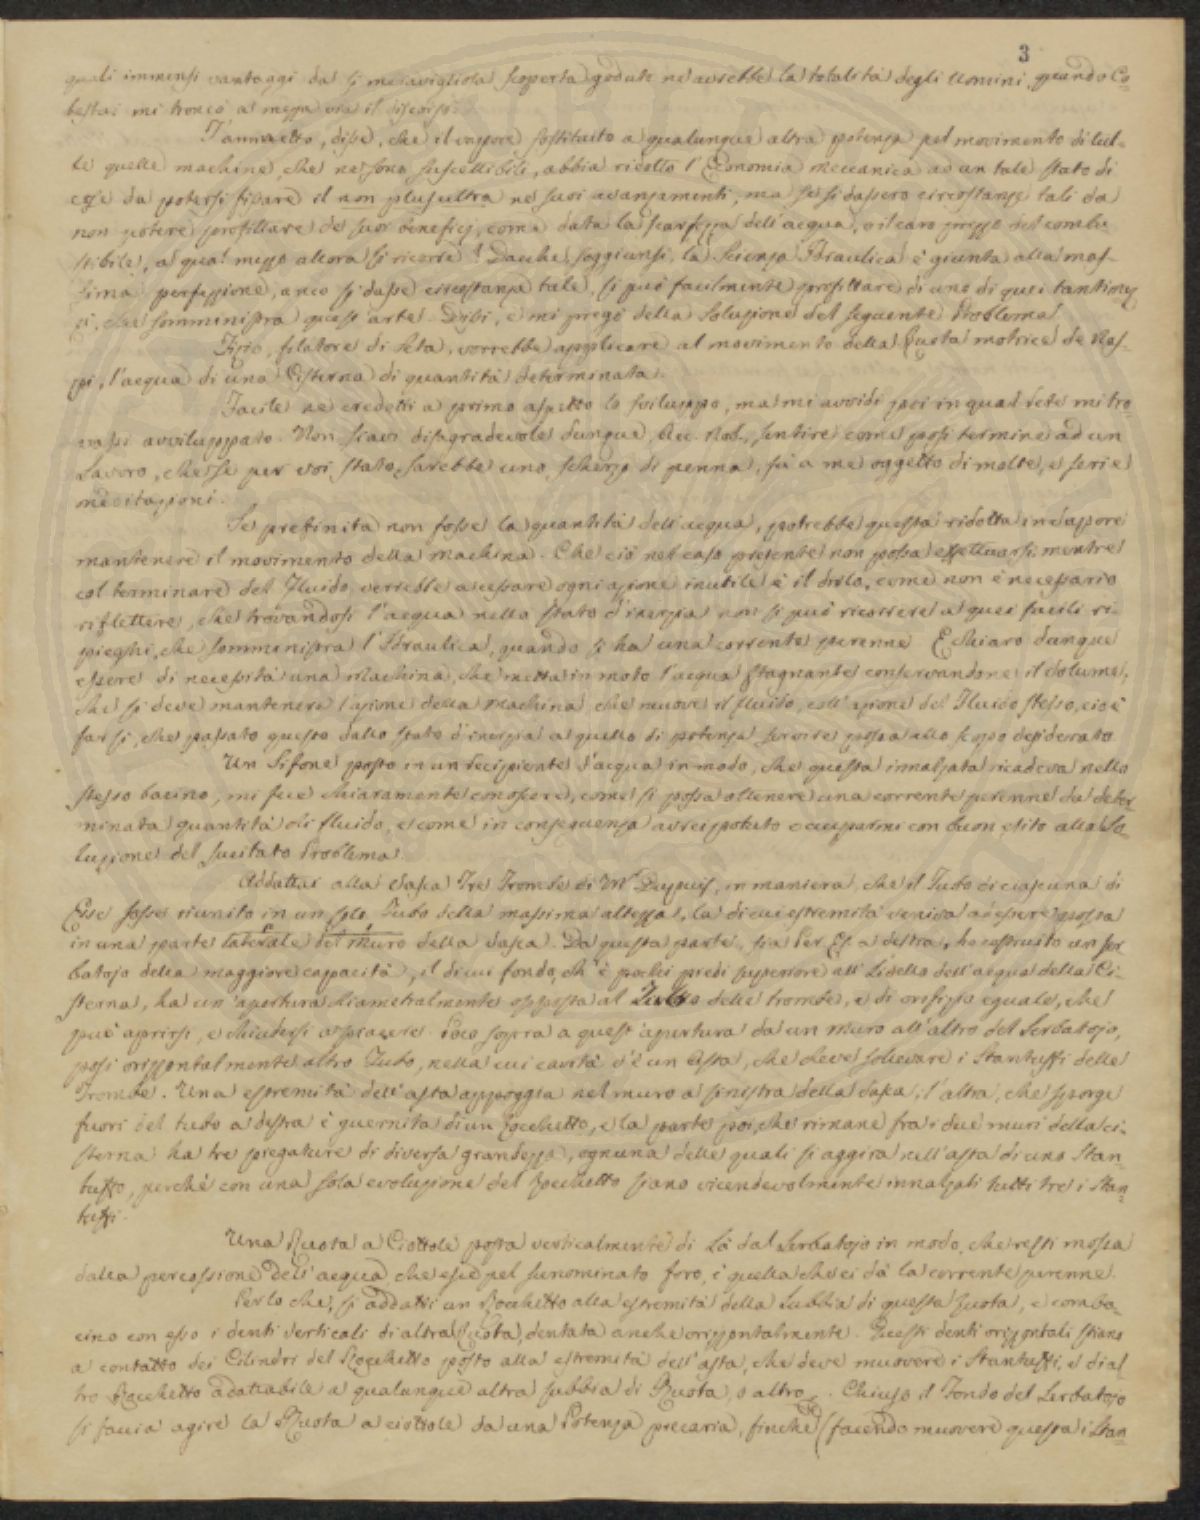 3
quali immensi vantaggi da sì meravigliosa scoperta godute ne avrebbe la totalità degli Uomini, quando Co=
testui mi troncò a mezza via il discorso.
T'ammetto, disse, che il vapore sostituito a qualunque altra potenza pel movimento di tut=
te quelle machine, che ne sono suscettibili, abbia ridotto l'Economia Meccanica ad un tale stato di
cose da potersi fissare il non plus ultra ne' suoi avanzamenti, ma se si dassero circostanze tali da
non potere profittare de' suoi benefizj, come data la scarsezza dell'acqua, o il caro prezzo del combu
stibile, a qual mezzo allora si ricorre? Dacchè, soggiunsi, la Scienza Idraulica è giunta alla mas=
sima perfezione, anco si dasse circostanza tale, si può facilmente profittare di uno di quei tanti
che somministra quest'arte. Dissi, e mi pregò della soluzione del seguente Problema.
Tizio, filatore di seta, vorrebbe applicare al movimento della Ruota motrice de Nas=
pi, l'acqua di una Cisterna di quantità determinata.
Facile ne credetti a primo aspetto lo sviluppo, ma mi avvidi poi in qual rete mi tro
vassi avviluppato. Non siavi disgradevole dunque, Acc. Nob., sentire come posi termine ad un
Lavoro, che se per voi stato sarebbe uno scherzo di penna, fù a me oggetto di molte, e serie
meditazioni.
Se prefinita non fosse la quantità dell'acqua, potrebbe questa ridotta in vapore
mantenere il movimento della machina. Che ciò nel caso presente non possa effettuarsi mentre
col terminare del Fluido verrebbe a cessare ogni azione inutile è il dirlo, come non è necessario
riflettere, che trovandosi l'acqua nello stato d'inerzia non si può ricorrere a quei facili ri=
pieghi, che somministra l'Idraulica, quando si ha una corrente perenne. È chiaro dunque
essere di necessità una Machina, che metta in moto l'acqua stagnante conservandone il volume,
che si deve mantenere l'azione della Machina che muove il fluido, coll'azione del Fluido stesso, cioè
far sì, che passato questo dallo stato d'inerzia a quello di potenza servire possa allo scopo desiderato.
Un Sifone posto in un recipiente d'acqua in modo, che questa innalzata ricadeva nello
stesso bacino, mi fece chiaramente conoscere, come si possa ottenere una corrente perenne da deter
minata quantità di fluido, e come in conseguenza avrei potuto occuparmi con buon esito alla So=
luzione del sucitato Problema.
Addattai alla Vasca Tre Trombe di Mr. Dupuis, in maniera, che il Tubo di ciascuna di
Esse fosse riunito in un solo Tubo della massima altezza, la di cui estremità veniva ad essere posta
in una parte laterale del muro della vasca. Da questa parte, sia per Es. a destra, ho costruito un ser
batojo della maggiore cappacità, il di cui fondo, ch'è pochi piedi superiore all'Livello dell'acqua della Ci=
sterna, ha un'apertura diametralmente opposta al Tubo delle trombe, e di orifizio eguale, che
può aprirsi, e chiudersi a piacere. Poco sopra a quest'apertura da un muro all'altro del Serbatojo,
posi orizzontalmente altro Tubo, nella cui cavità v'è un Asta, che deve sollevare i Stantuffi delle
Trombe. Una estremità dell'asta appoggia nel muro a sinistra della Vasca; l'altra, che sporge
fuori del tubo a destra è guernita d'un Rocchetto, e la parte poi, che rimane fra i due muri della ci=
sterna ha tre piegature di diversa grandezza, ognuna delle quali si aggira nell'asta di uno Stan=
tuffo, perchè con una sola evoluzione del Rocchetto siano vicendevolmente innalzati tutti tre i Stan=
tuffi.
Una Ruota a Ciottole posta verticalmente di Là dal Serbatojo in modo, che resti mossa
dalla percossione dell'acqua che esce pel sunominato foro, è quella che ci dà la corrente perenne.
Per lo che, si addatti un Rocchetto alla estremità della Subbia di questa Ruota, e comba=
cino con esso i denti verticali di altra Ruota, dentata anche orizzontalmente. Questi denti orizzontali stiano
a contatto dei Cilindri del Rocchetto posto alla estremità dell'asta, che deve muovere i Stantuffi, e d'al
tro Rocchetto adattabile a qualunque altra subbia di Ruota, o altro. Chiuso il Fondo del Serbatojo
si faccia agire la Ruota a ciottole da una Potenza precaria, finchè (facendo muovere questa i Stan=